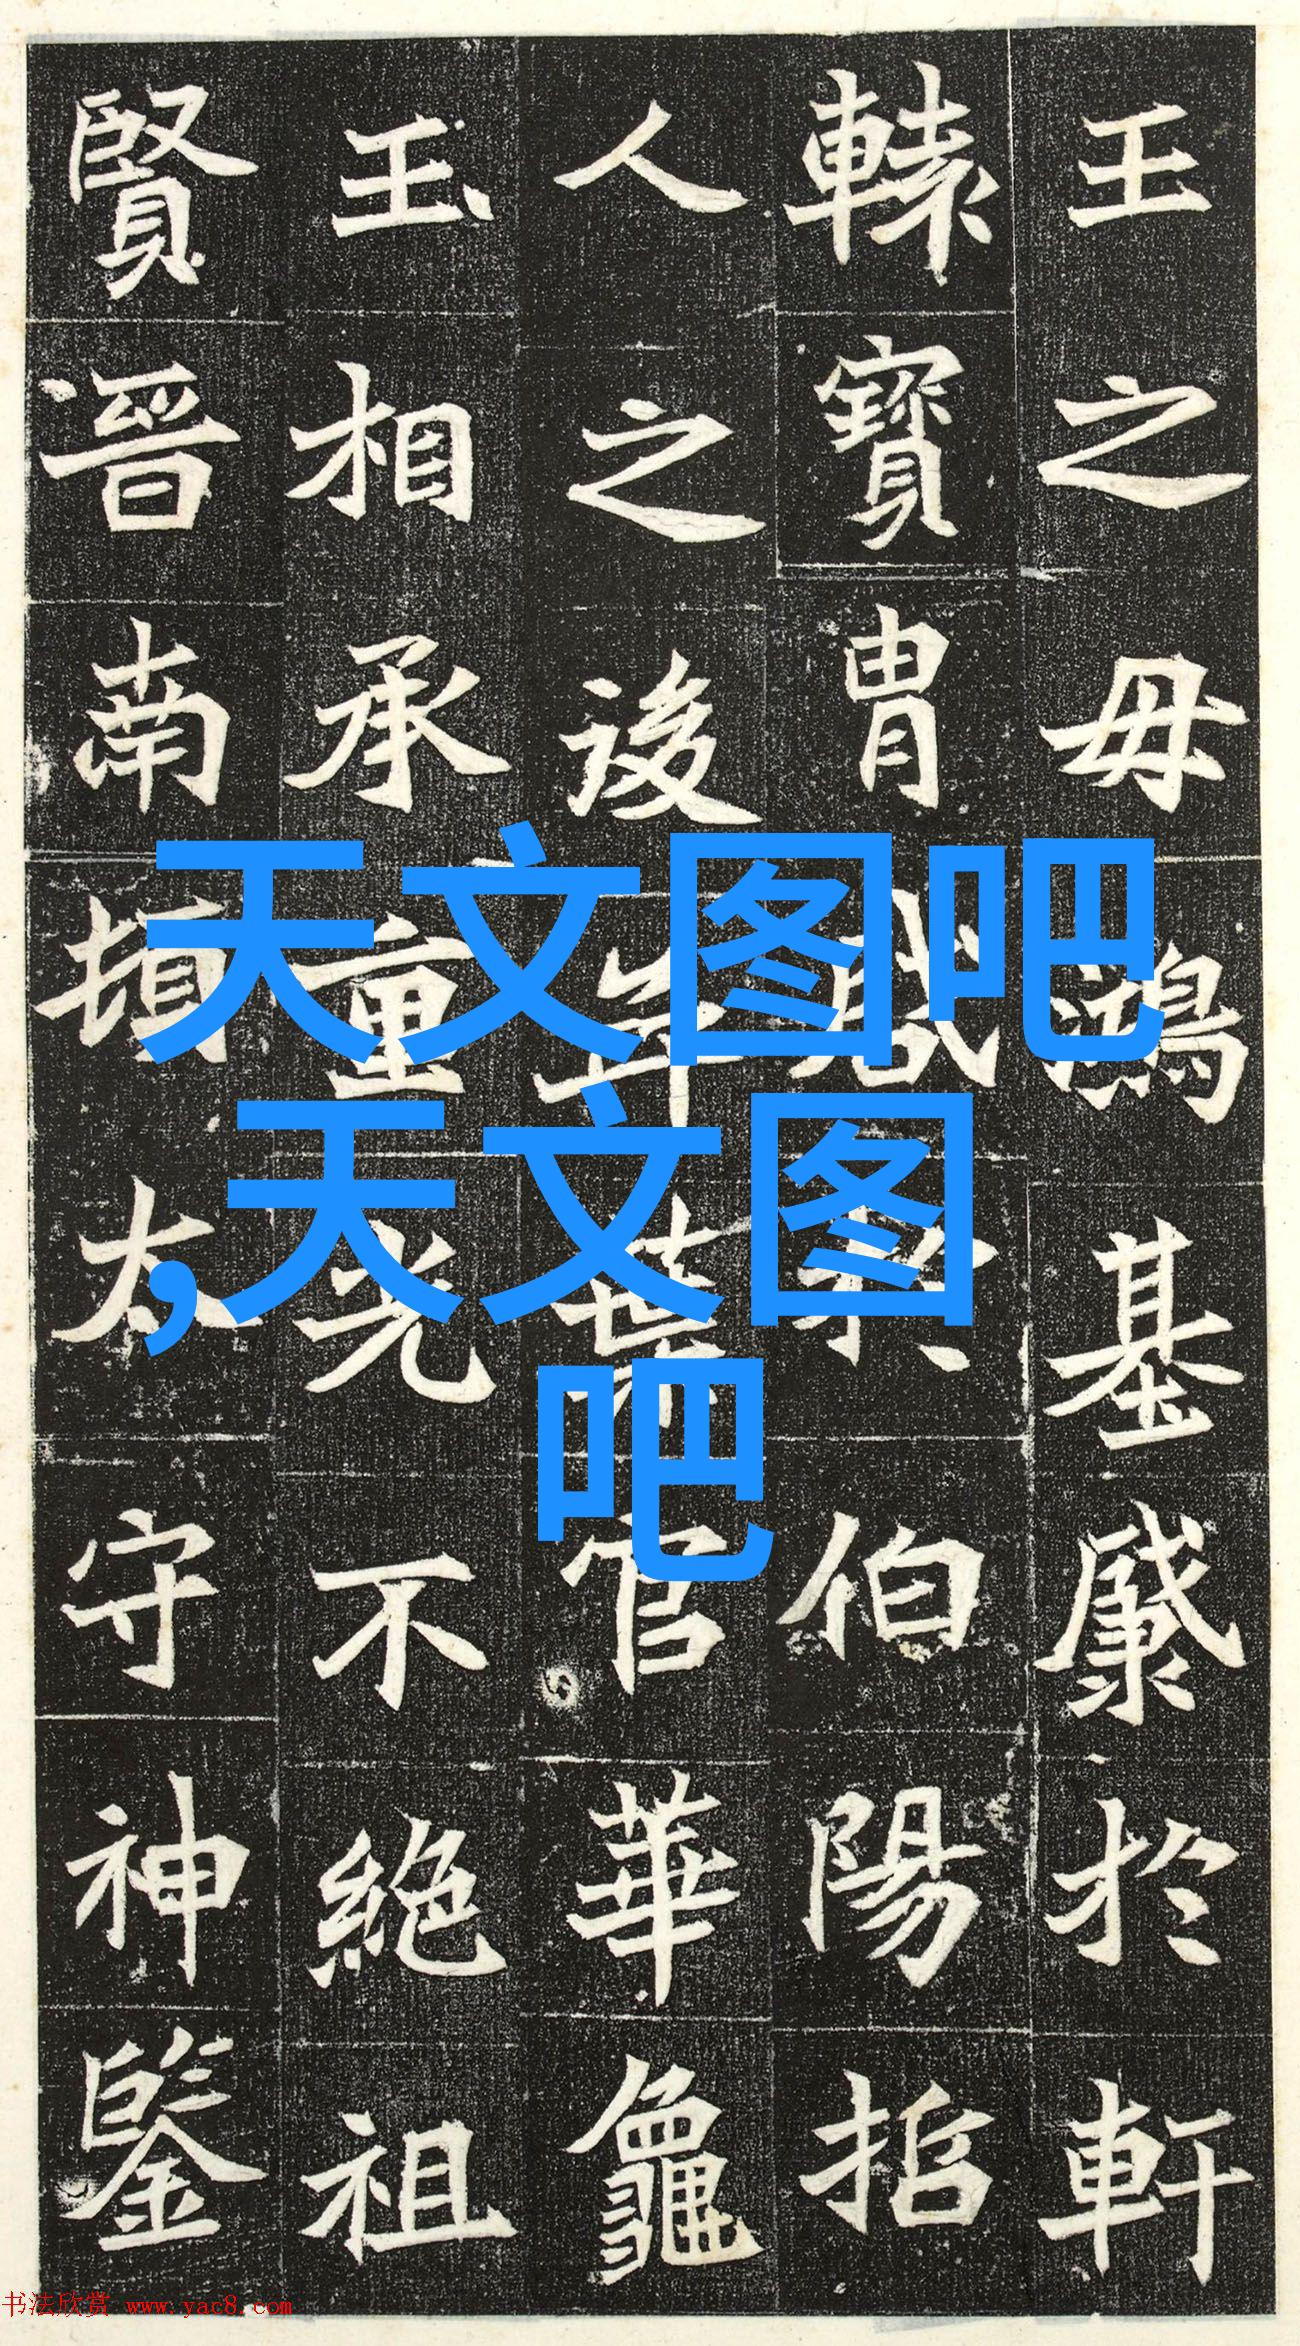 王之毋鴻基於軒
轅寶胄伯陽招
人之後官華龜
玉相承重光不絕祖
賢晉南頓太守神鑒
天文图吧
,天文图
吧
书法欣赏 www.yac8.com